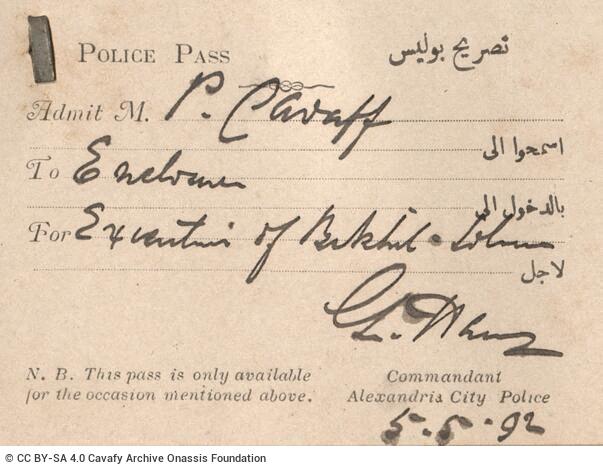 POLICE PASS تصريح بوليس
Admit M. P. Cavaff
اسمحوا الى
To Enclosure
بالدخول الى
For Execution of
لاجل
N. B. This pass is only available
for the occasion mentioned above.
Commandant
Alexandris City Police
5.5.92
© CC BY-SA 4.0 Cavafy Archive Onassis Foundation